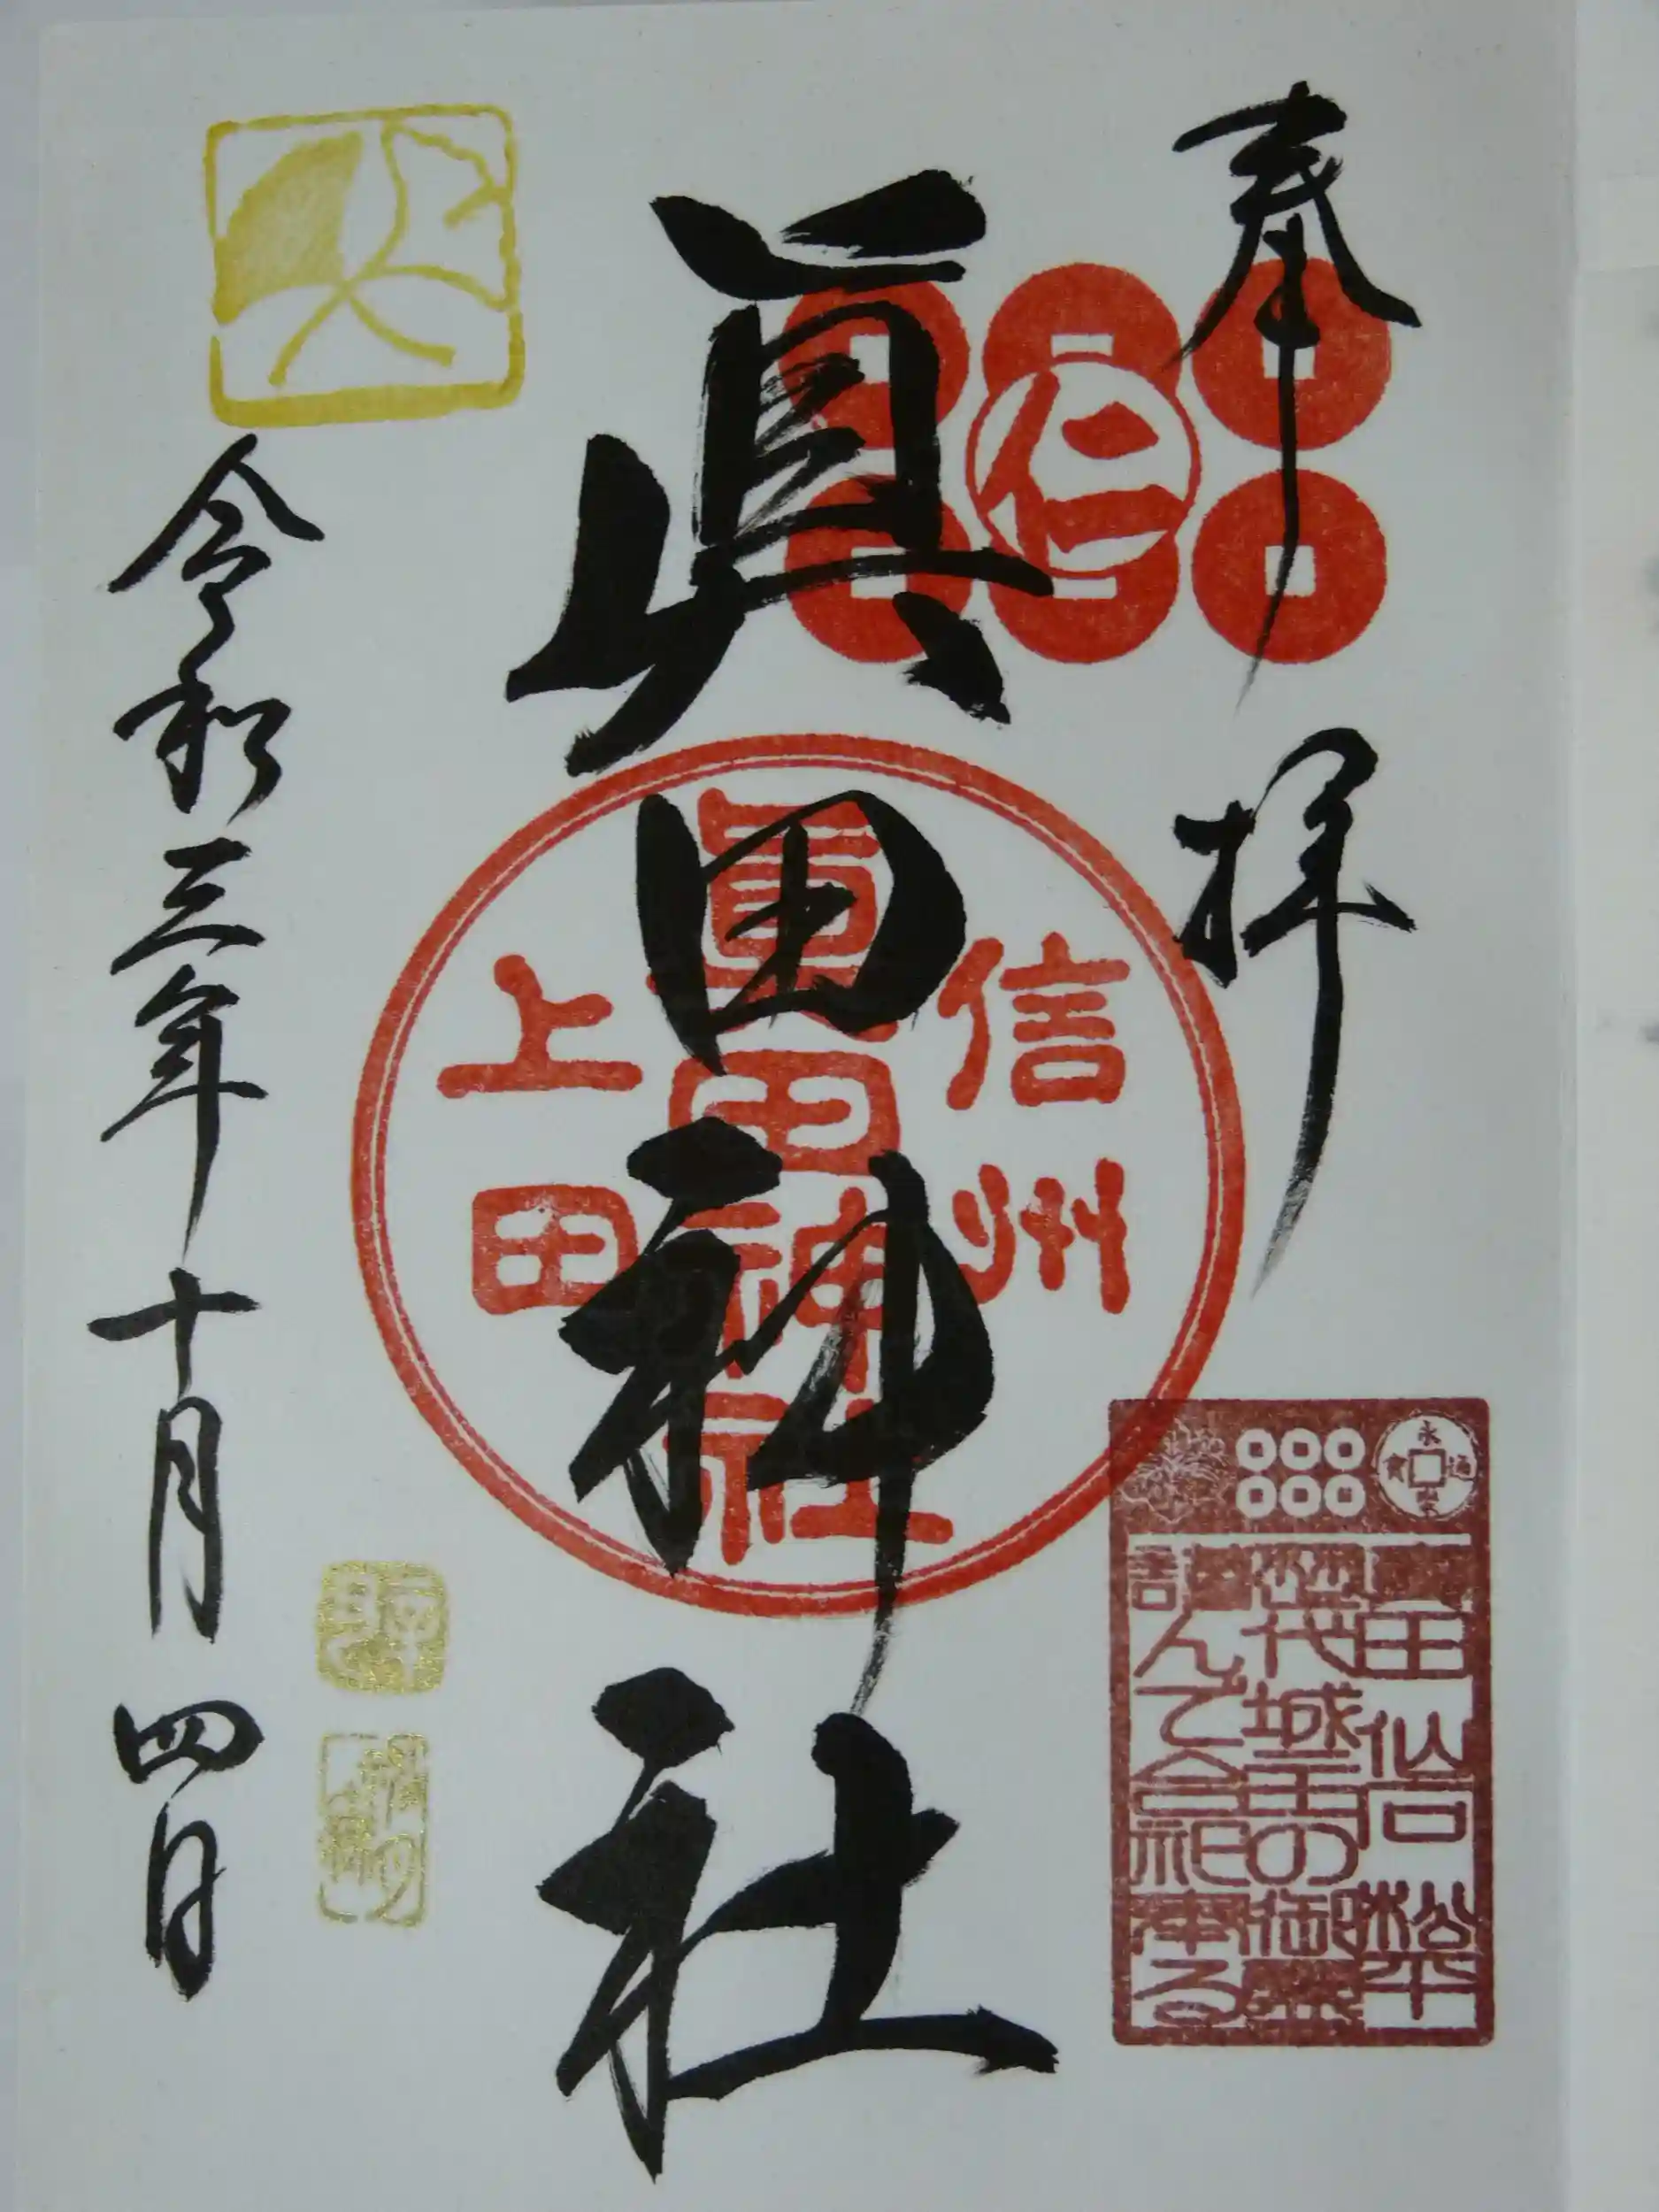 奉拝
仁
眞田神社
信州
眞田神社
上田
永楽通寳
真田仙石松平
歴代城主の御霊
謹んで合祀奉る
令和三年十月四日